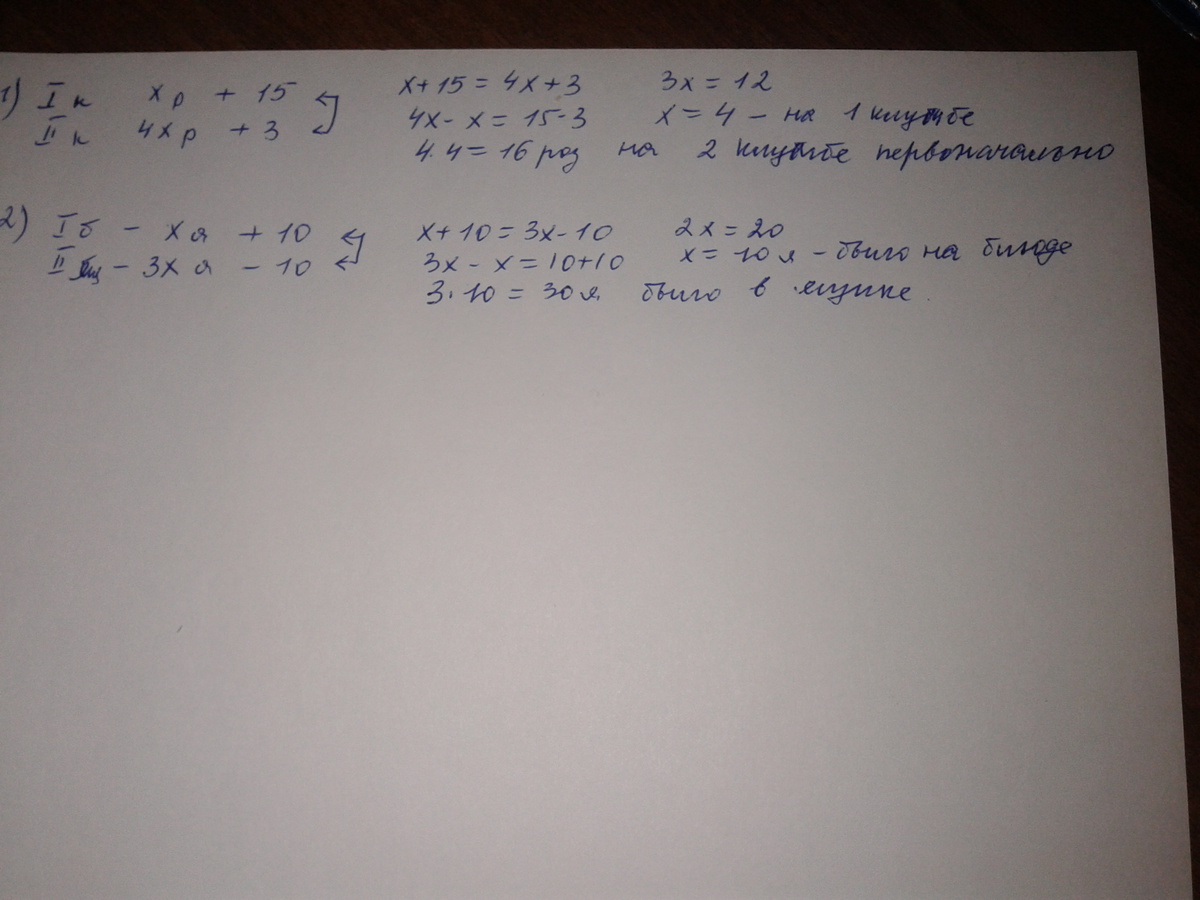 1) I к хр + 15 х+15 = 4х+3 3х = 12
II к 4хр + 3 4х - х = 15-3 х = 4 - на 1 клумбе
4·4 = 16 роз на 2 клумбе первоначально
2) I б - х я + 10 х+10 = 3х-10 2х = 20
II ящ - 3х я - 10 3х - х = 10+10 х = 10 я - было на блюде
3·10 = 30 я было в ящике.